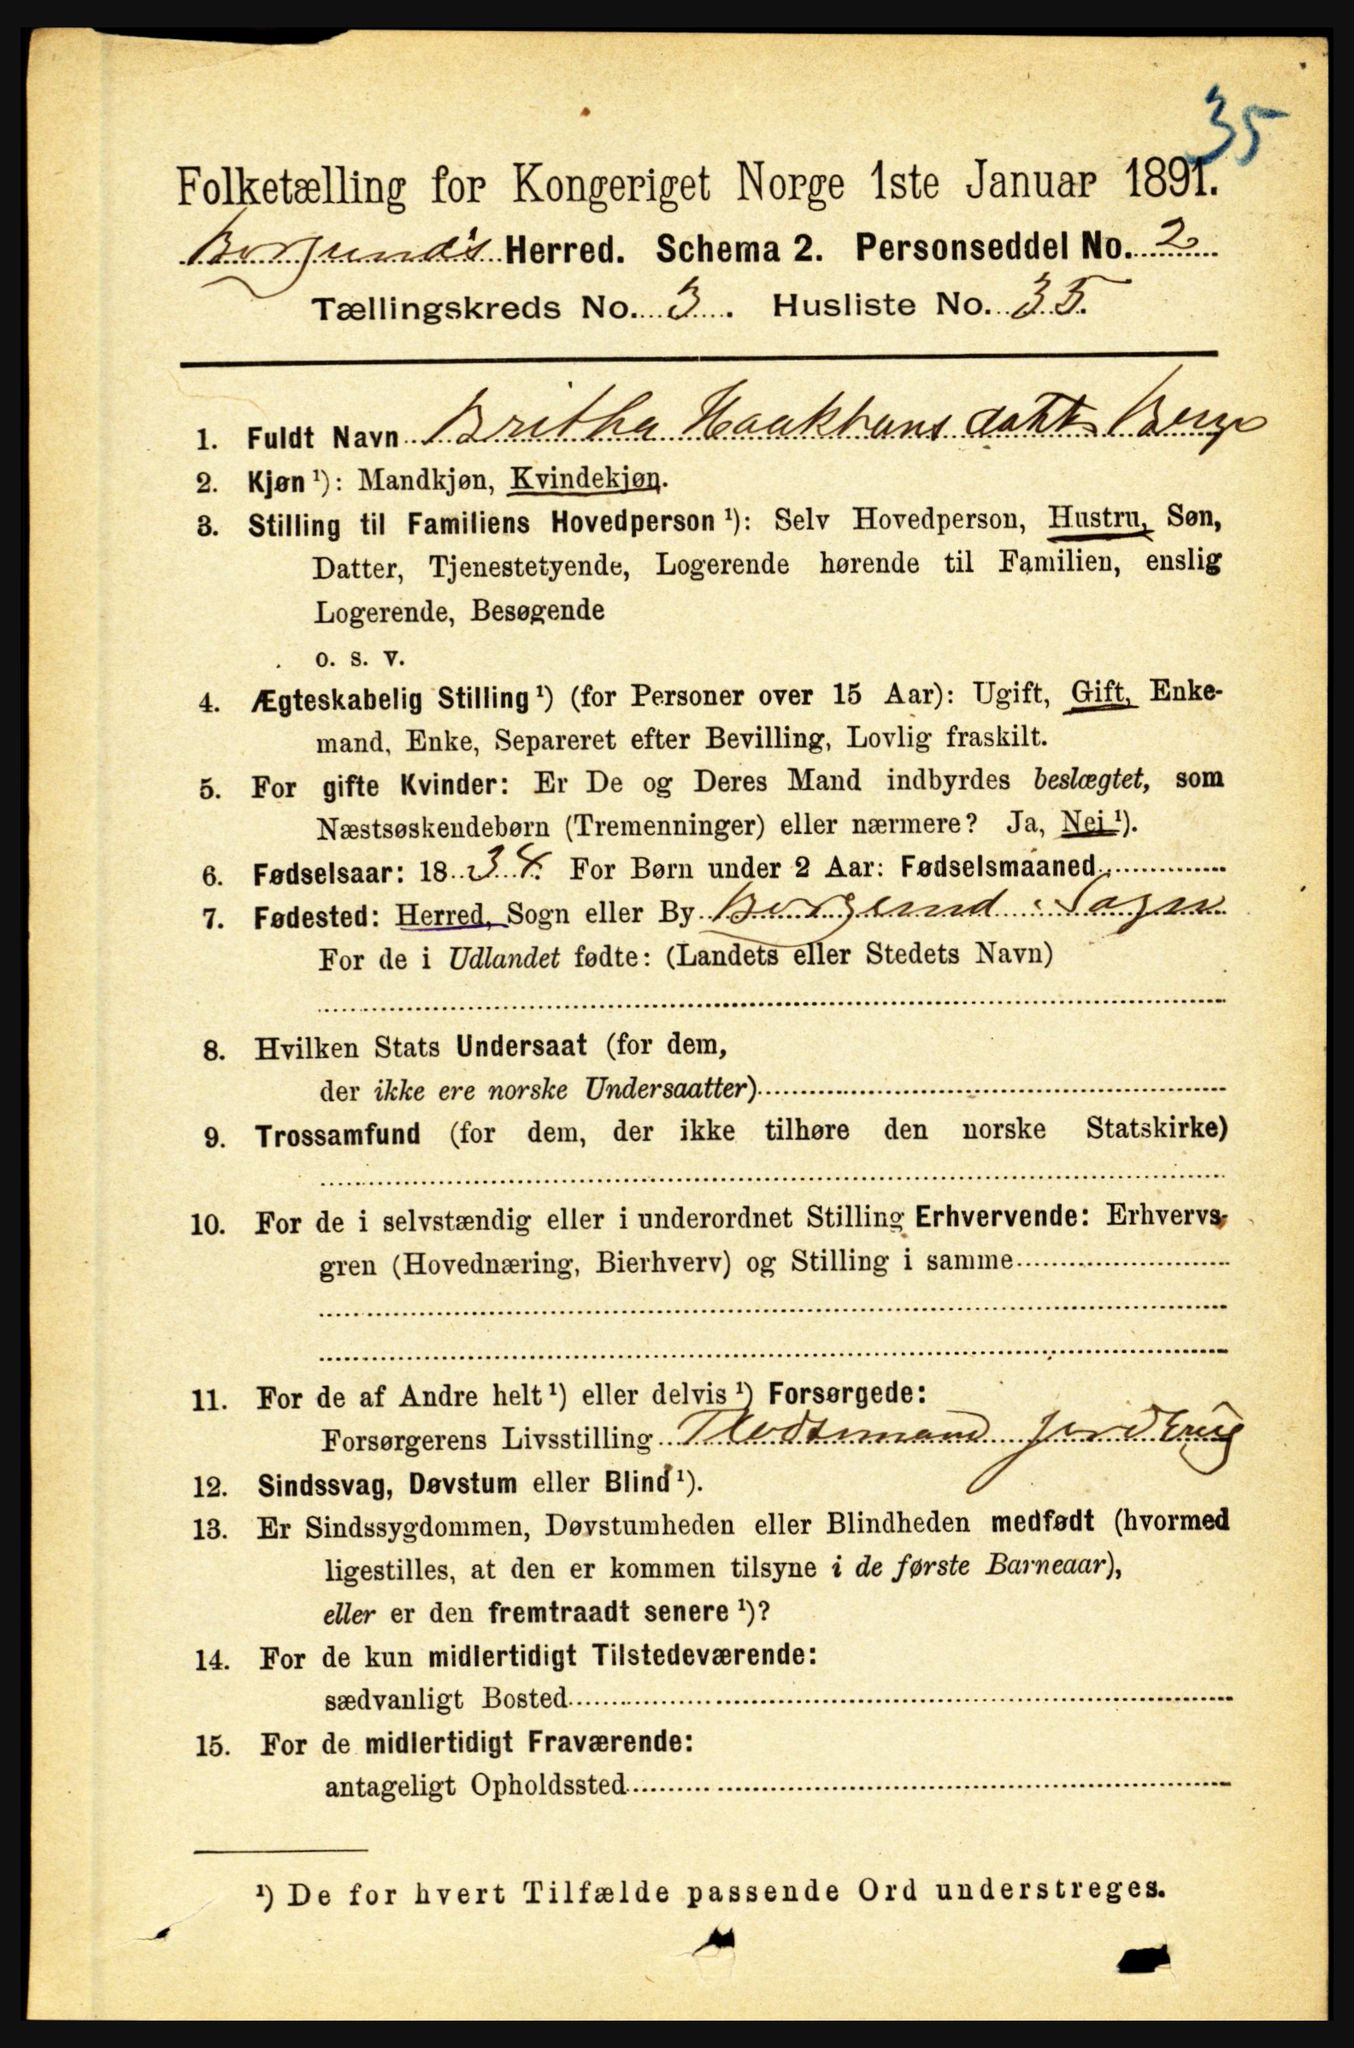 35
Folketælling for Kongeriget Norge 1ste Januar 1891.
Borgund's Herred. Schema 2. Personseddel No. 2
Tællingskreds No. 3. Husliste No. 35.
1. Fuldt Navn Britha Haakhans datt Berge
2. Kjøn ¹): Mandkjøn, Kvindekjøn.
3. Stilling til Familiens Hovedperson ¹): Selv Hovedperson, Hustru, Søn,
Datter, Tjenestetyende, Logerende hørende til Familien, enslig
Logerende, Besøgende
o. s. v.
4. Ægteskabelig Stilling ¹) (for Personer over 15 Aar): Ugift, Gift, Enke-
mand, Enke, Separeret efter Bevilling, Lovlig fraskilt.
5. For gifte Kvinder: Er De og Deres Mand indbyrdes beslægtet, som
Næstsøskendebørn (Tremenninger) eller nærmere? Ja, Nei ¹).
6. Fødselsaar: 1834. For Børn under 2 Aar: Fødselsmaaned
7. Fødested: Herred, Sogn eller By Borgund Sogn
For de i Udlandet fødte: (Landets eller Stedets Navn)
8. Hvilken Stats Undersaat (for dem,
der ikke ere norske Undersaatter)
9. Trossamfund (for dem, der ikke tilhøre den norske Statskirke)
10. For de i selvstændig eller i underordnet Stilling Erhvervende: Erhvervs-
gren (Hovednæring, Bierhverv) og Stilling i samme
11. For de af Andre helt ¹) eller delvis ¹) Forsørgede:
Forsørgerens Livsstilling
12. Sindssvag, Døvstum eller Blind ¹).
13. Er Sindssygdommen, Døvstumheden eller Blindheden medfødt (hvormed
ligestilles, at den er kommen tilsyne i de første Barneaar),
eller er den fremtraadt senere ¹)?
14. For de kun midlertidigt Tilstedeværende:
sædvanligt Bosted
15. For de midlertidigt Fraværende:
antageligt Opholdssted
¹) De for hvert Tilfælde passende Ord understreges.